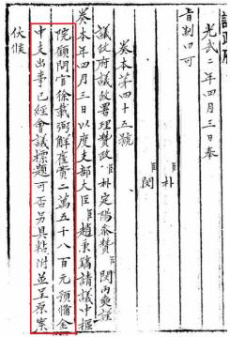 光武二年四月三日奉
旨制曰可
朴
閔
奏本第四十五號
議政府議政署理贊政臣朴定陽參贊臣閔丙奭謹
奏本年四月三日以度支部大臣臣趙秉鎬請議中樞
院顧問官徐載弼解雇費二萬五千八百元預備金
中支出事已經會議標題可否另具粘附並呈原案
伏候